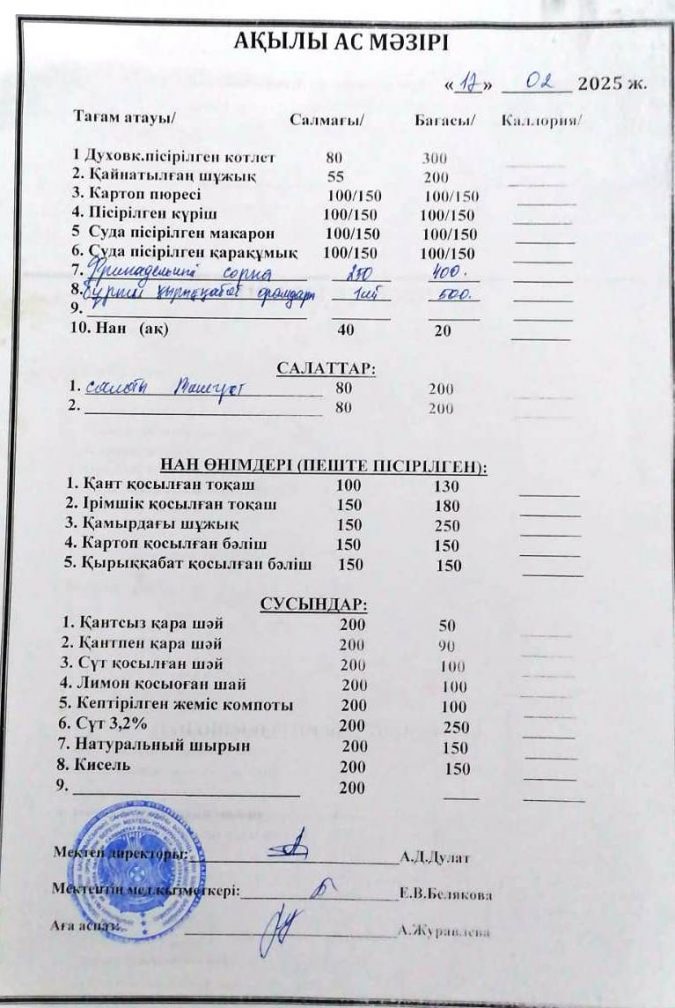 АҚЫЛЫ АС МӘЗІРІ
«12» 02 2025 ж.
Тағам атауы/ Салмағы/ Бағасы/ Каллория/
1 Духовк.пісірілген котлет 80 300
2. Қайнатылған шұжық 55 200
3. Картоп пюресі 100/150 100/150
4. Пісірілген күріш 100/150 100/150
5 Суда пісірілген макарон 100/150 100/150
6. Суда пісірілген қарақұмық 100/150 100/150
7. сорпа 250 400.
8. 500.
9.
10. Нан (ақ) 40 20
САЛАТТАР:
1. салаты 80 200
2. 80 200
НАН ӨНІМДЕРІ (ПЕШТЕ ПІСІРІЛГЕН):
1. Қант қосылған тоқаш 100 130
2. Ірімшік қосылған тоқаш 150 180
3. Қамырдағы шұжық 150 250
4. Картоп қосылған бәліш 150 150
5. Қырыққабат қосылған бәліш 150 150
СУСЫНДАР:
1. Қантсыз қара шәй 200 50
2. Қантпен қара шәй 200 90
3. Сүт қосылған шәй 200 100
4. Лимон қосыоған шай 200 100
5. Кептірілген жеміс компоты 200 100
6. Сүт 3,2% 200 250
7. Натуральный шырын 200 150
8. Кисель 200 150
9. 200
Мектеп директоры: А.Д.Дулат
Мектептің мед.қызметкері: Е.В.Белякова
Аға аспаз: А.Журавлева